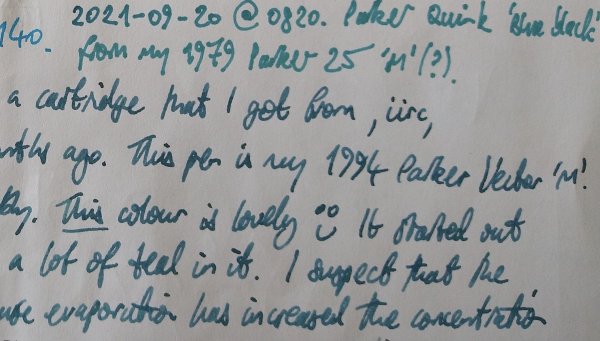 2021-09-20 @ 0820. Parker Quink 'blue black'
140. from my 1979 Parker 25 'M'(?).
a cartridge that I got from, iirc,
ago. This pen is my 1994 Parker Vector 'M'.
This colour is lovely :) It started out
a lot of teal in it. I suspect that the
evaporation has increased the concentration